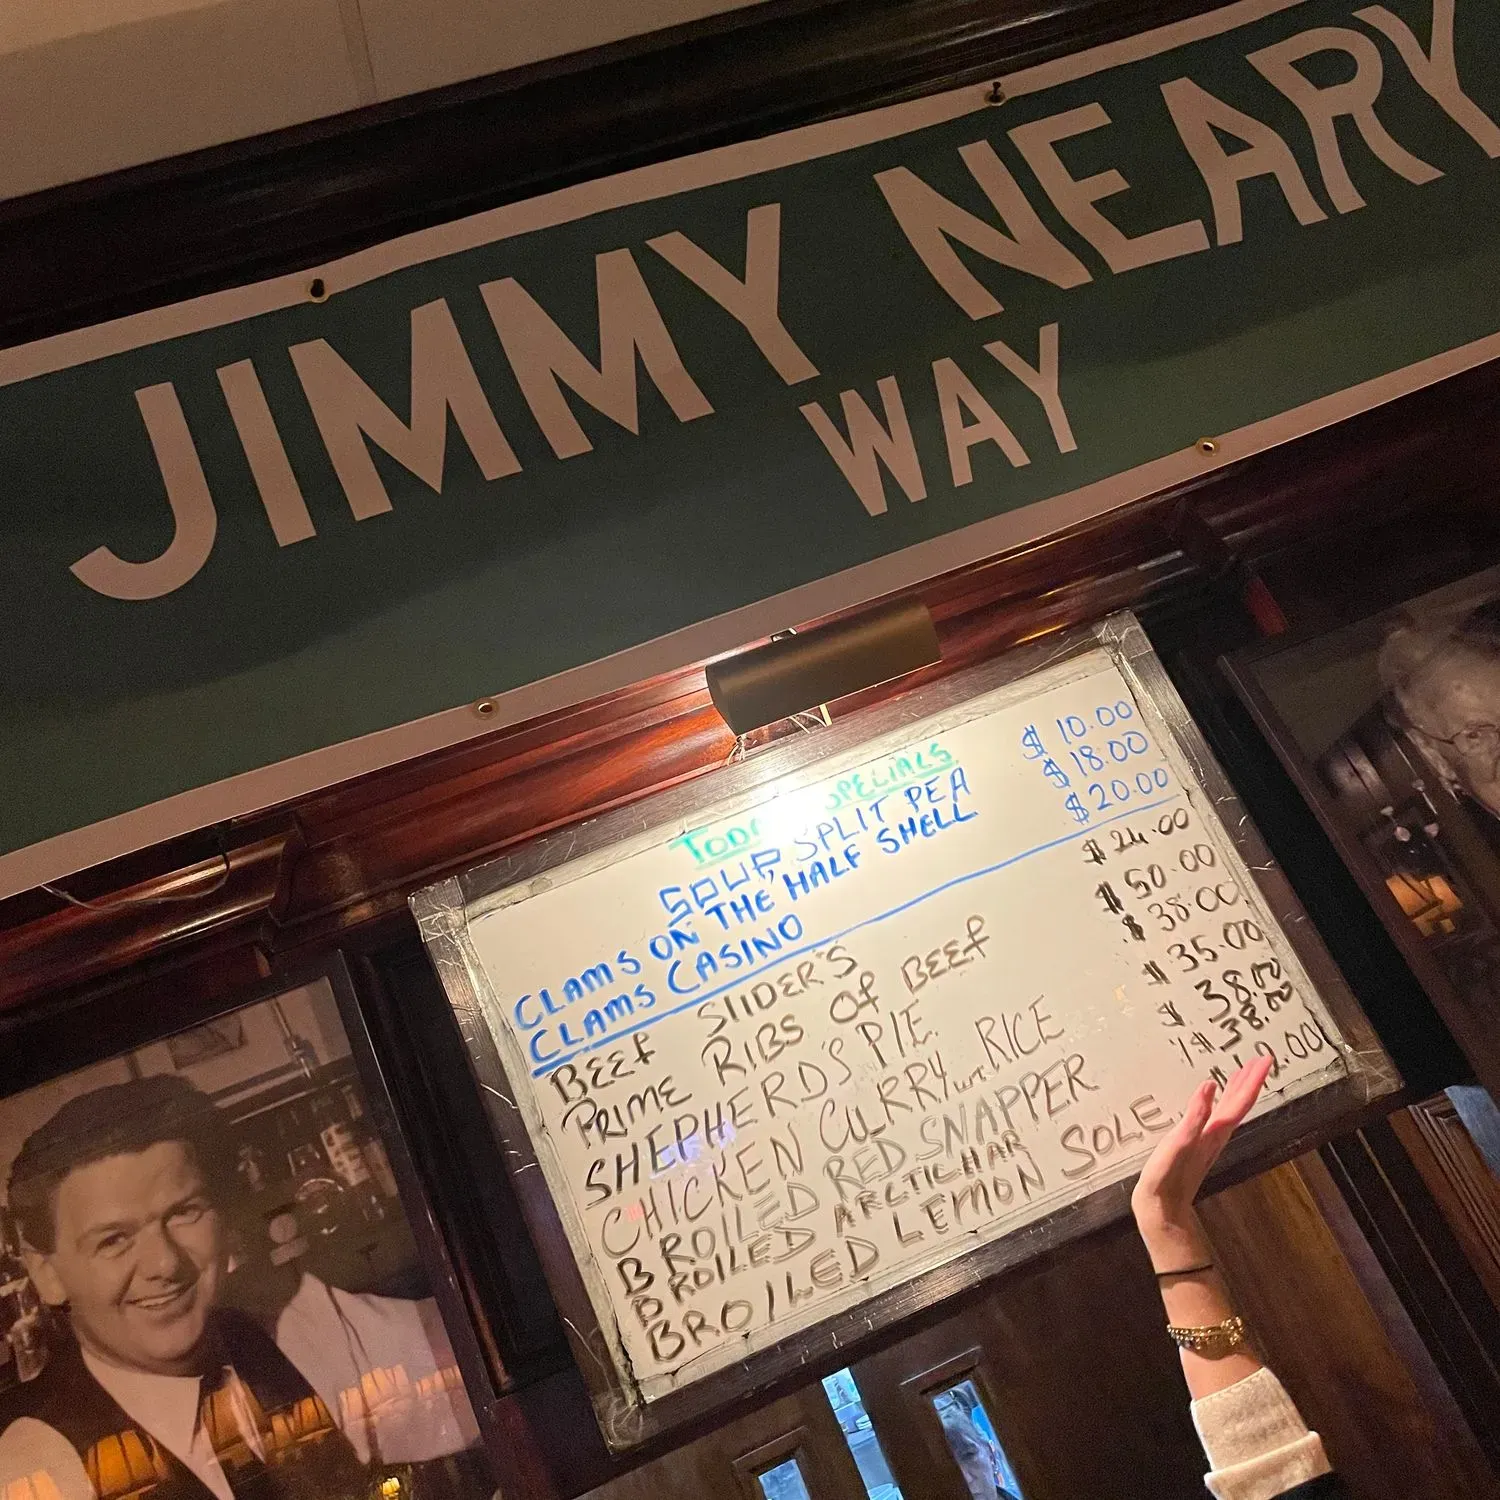 JIMMY NEARY
WAY
TODAY SPECIALS
SOUP, SPLIT PEA $ 10.00
CLAMS ON THE HALF SHELL $ 18.00
CLAMS CASINO $ 20.00
BEEF SLIDER'S $ 24.00
PRIME RIBS OF BEEF $ 50.00
SHEPHERD'S PIE. $ 38.00
CHICKEN CURRY WITH RICE $ 35.00
BROILED RED SNAPPER $ 38.00
BROILED ARCTIC HAR $ 38.00
BROILED LEMON SOLE. $ 42.00